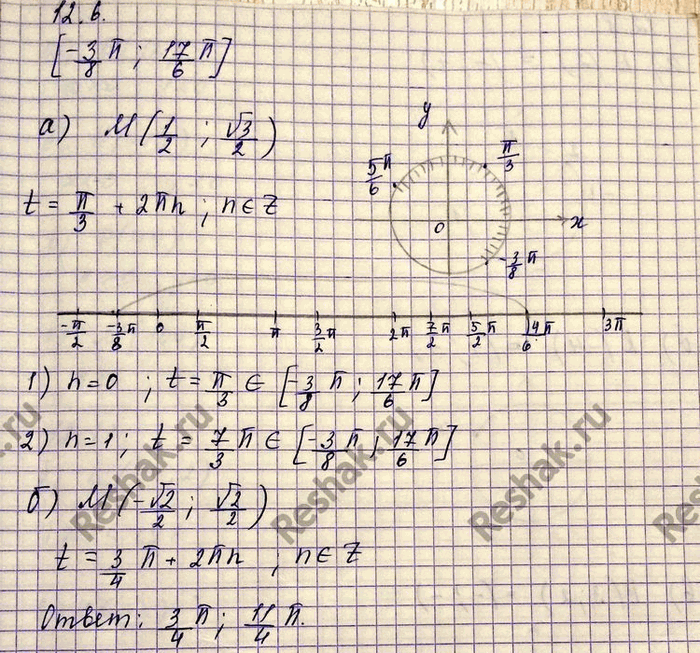 12.6.
[-3/8 π ; 17/6 π]
а) M(1/2 ; √3/2)
t = π/3 + 2πn ; n ∈ Z
y
π/3
5/6 π
0
x
-3/8 π
-π/2 -3/8 π 0 π/2 π 3/2 π 2π 7/2 π 5/2 π 14/6 π 3π
1) n = 0 ; t = π/3 ∈ [-3/8 π ; 17/6 π]
2) n = 1 ; t = 7/3 π ∈ [-3/8 π ; 17/6 π]
б) M(-√2/2 ; √2/2)
t = 3/4 π + 2πn ; n ∈ Z
Ответ: 3/4 π ; 11/4 π.
Reshak.ru
Reshak.ru
Reshak.ru